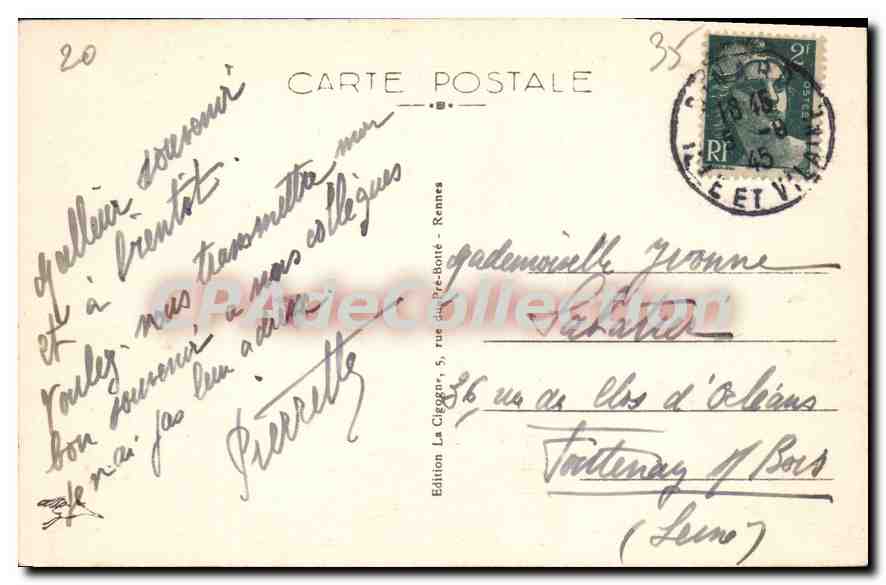 20
35
CARTE POSTALE
2F
POSTES
RF
18 45
-9
45
ILLE ET VILAINE
Meilleur souvenir
et à bientôt.
Voulez-vous transmettre mon
bon souvenir à nos collègues
je n'ai pas leur adresse
Pierrette
Edition La Cigogne, 5, rue du Pré-Botté - Rennes
Mademoiselle Yvonne
Sabatier
36 rue du Clos d'Orléans
Fontenay s/ Bois
(Seine)
CPAdeCollection.